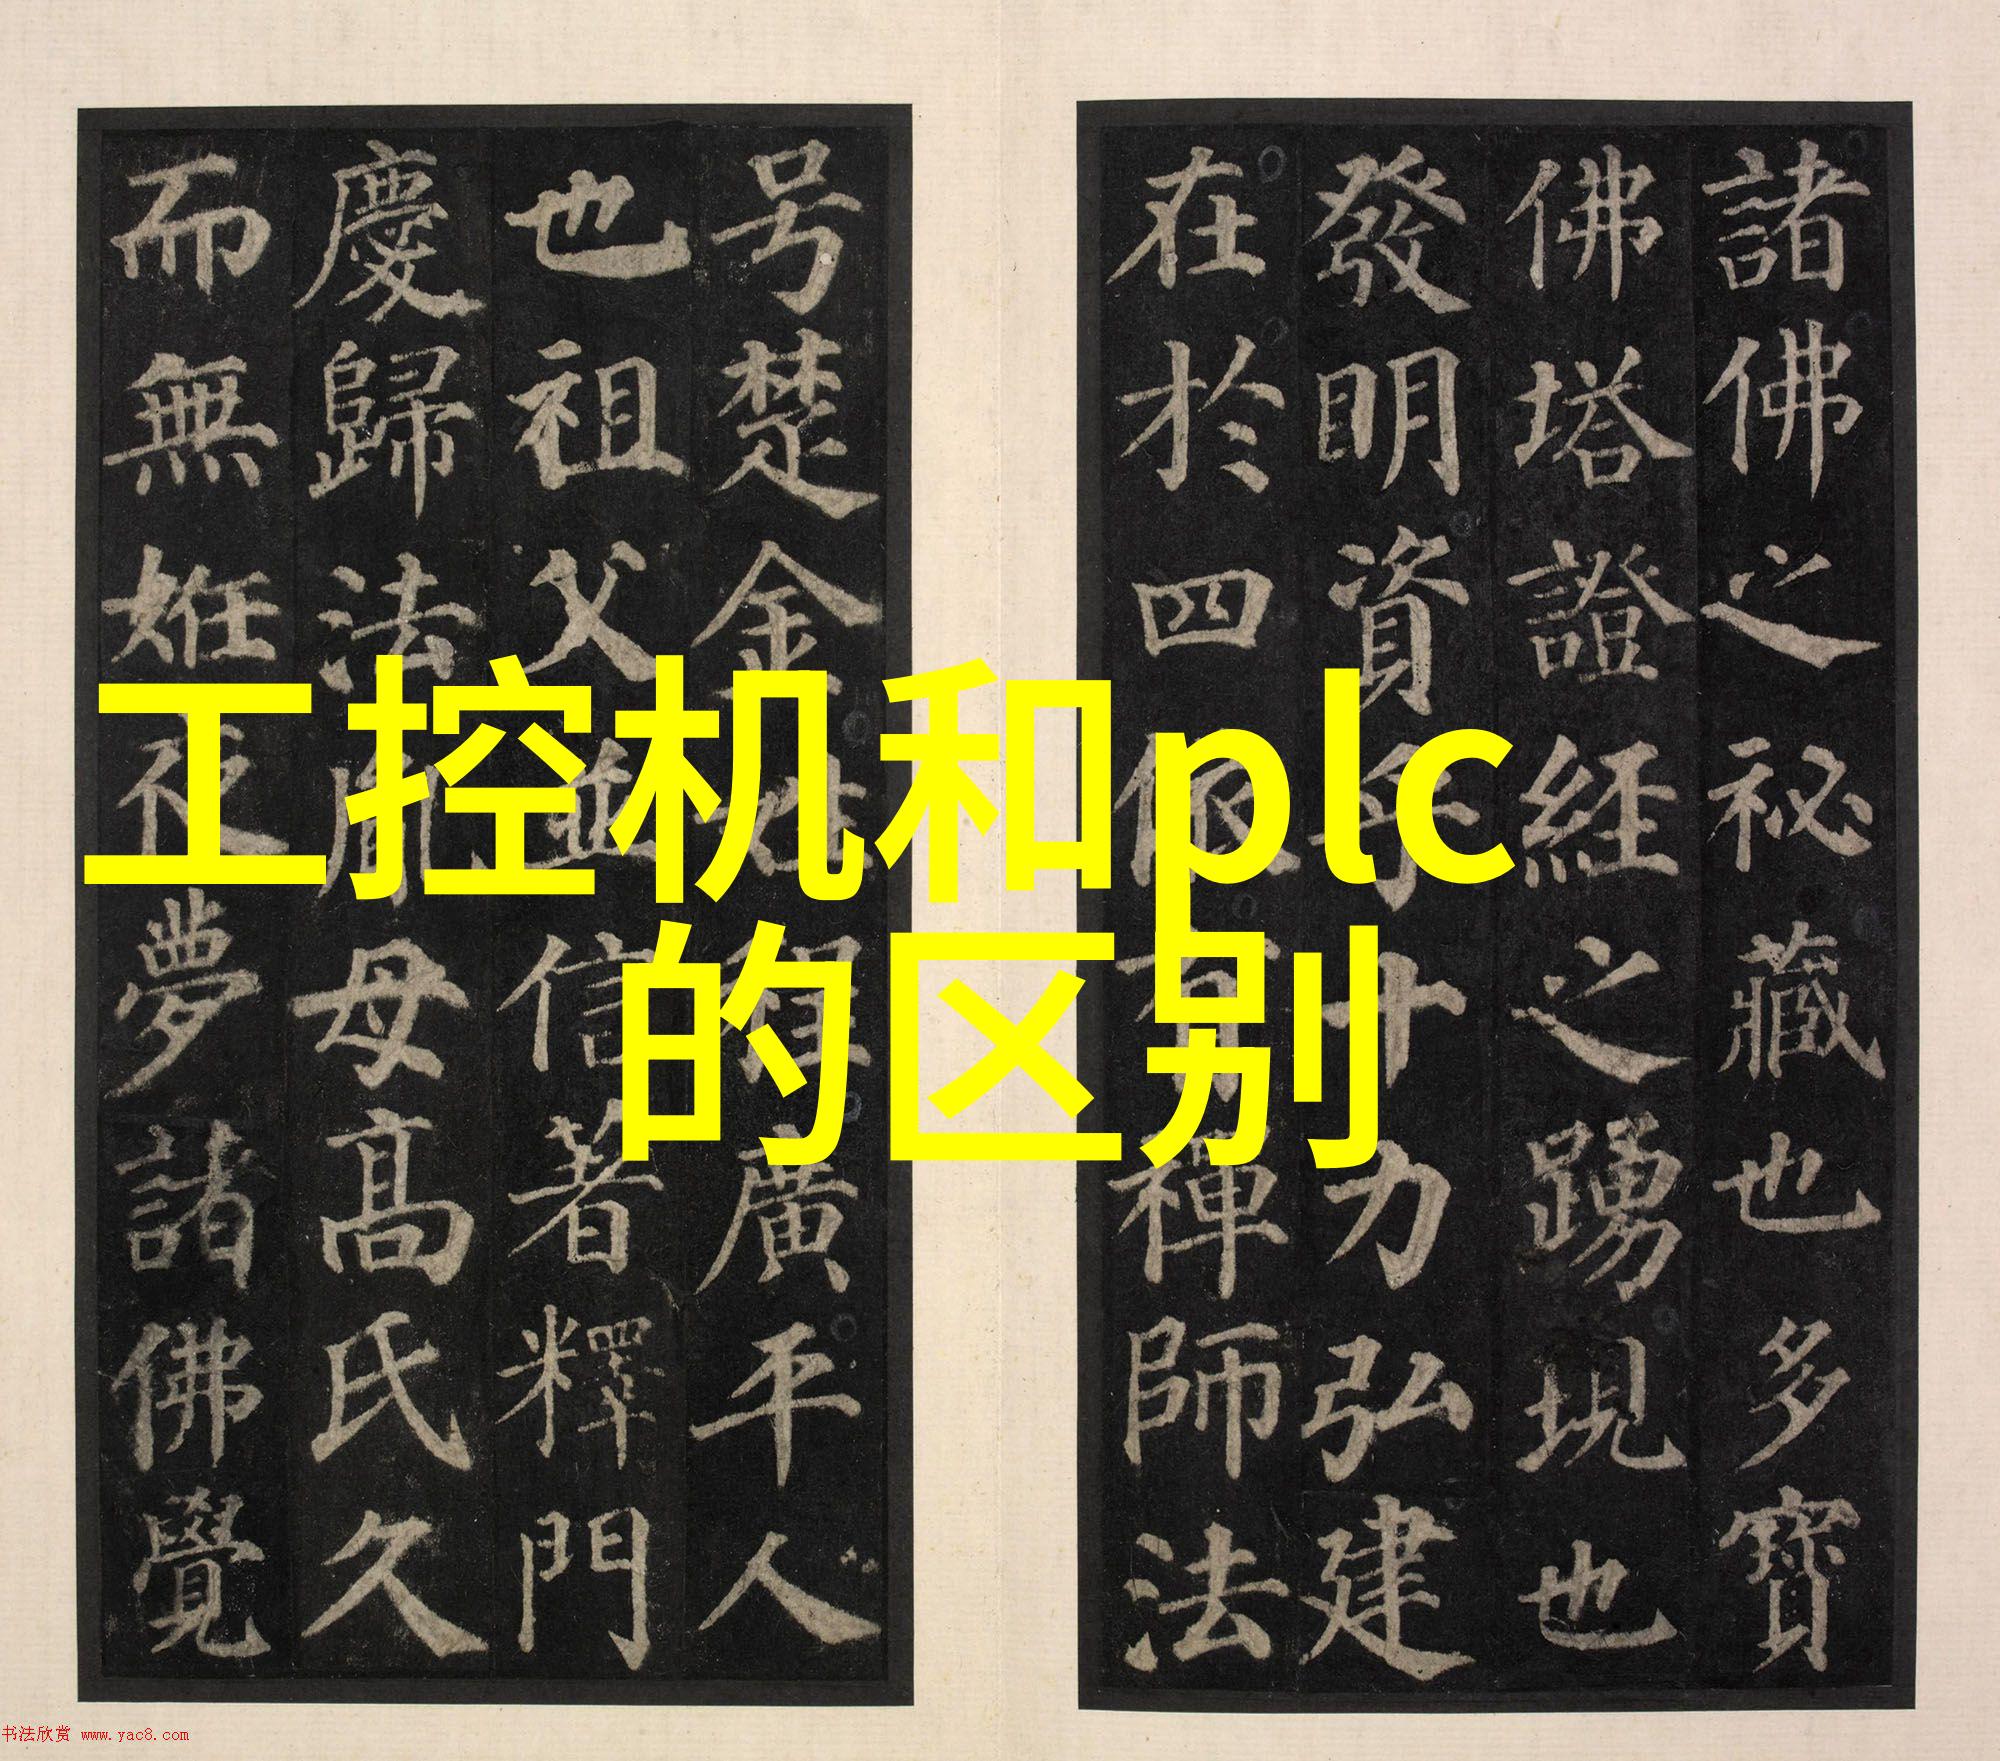 諸佛之祕藏也多寶
佛塔證經之踴現也
發明資乎十力弘建
在於四依有禪師法
号楚金姓程廣平人
也祖父並信著釋門
慶歸法胤母高氏久
而無姙夜夢諸佛覺
工控机和plc
的区别
书法欣赏 www.yac8.com